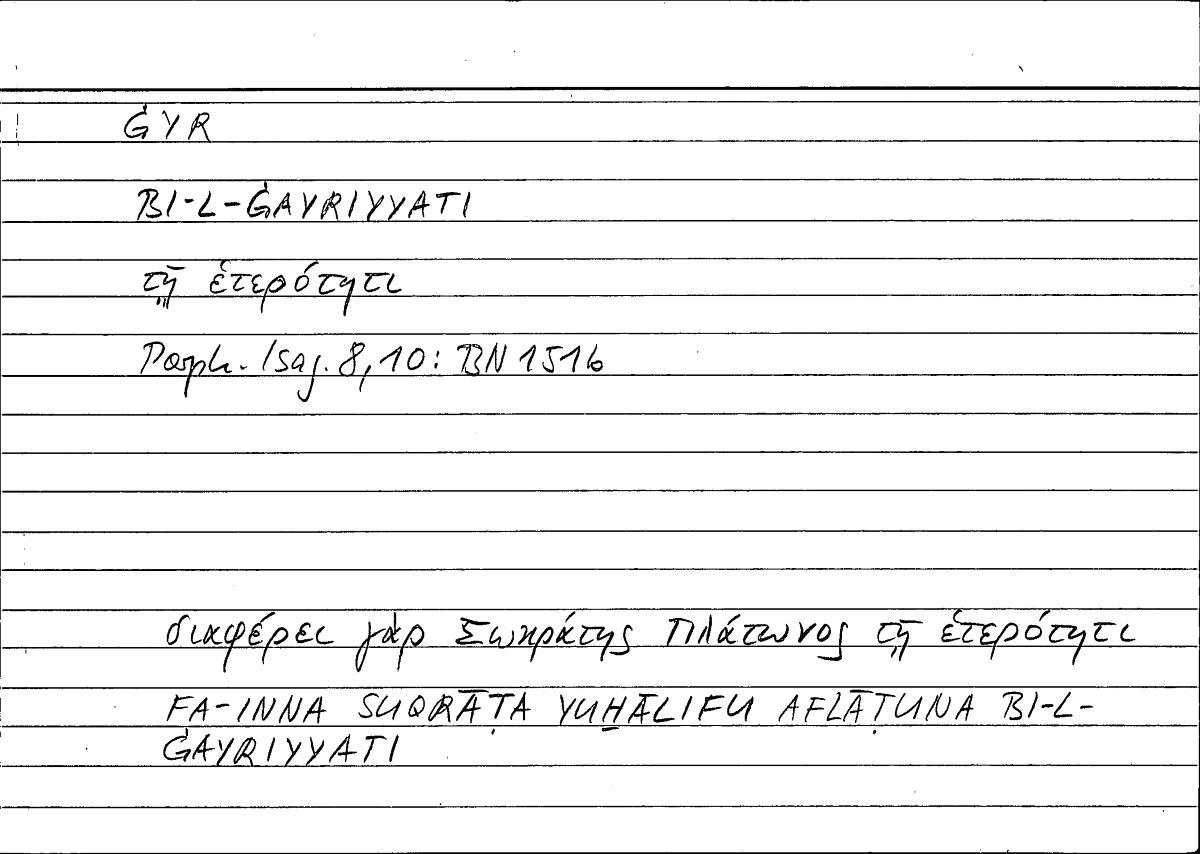 ĠYR
BI-L-ĠAYRIYYATI
τῇ ἑτερότητι
Porph. Isag. 8,10: BN 151b
διαφέρει γὰρ Σωκράτης Πλάτωνος τῇ ἑτερότητι
FA-INNA SUQRĀṬA YUḪĀLIFU AFLĀṬUNA BI-L-
ĠAYRIYYATI